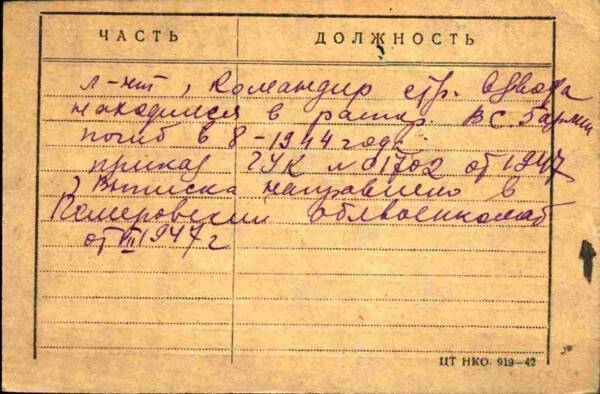 ЧАСТЬ ДОЛЖНОСТЬ
л-нт, Командир стр. взвода
находился в распор. ВС. 5 армии
погиб в 8-1944 году
приказ ГУК № 01702 от 1947
Выписка направлено в
Кемеровский облвоенкомат
от VII 1947 г
ЦТ НКО. 919—42